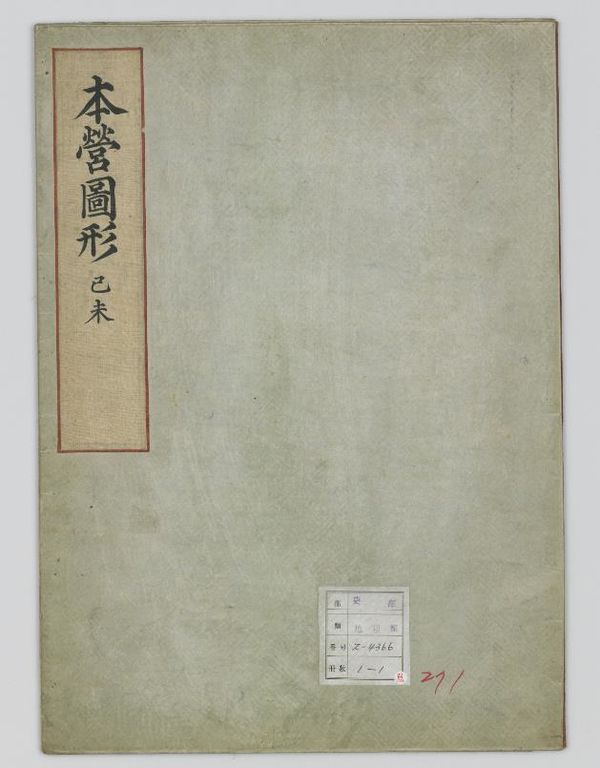 本營圖形 己未
部 史 部
類 地理類
番号 2-4366
冊數 1-1
271